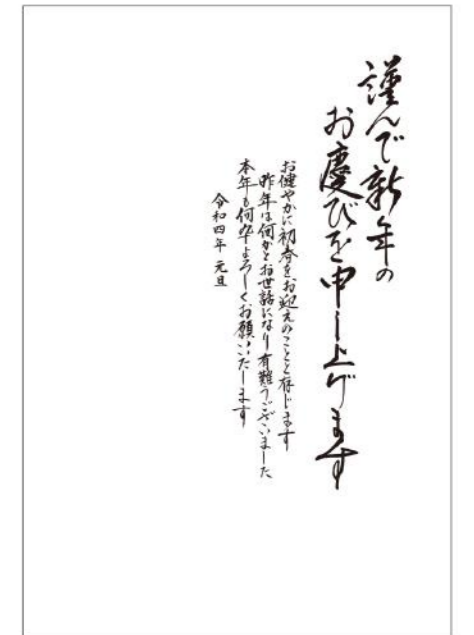 謹んで新年の
お慶びを申し上げます
お健やかに初春をお迎えのことと存じます
昨年は何かとお世話になり有難うございました
本年も何卒よろしくお願いいたします
令和四年 元旦